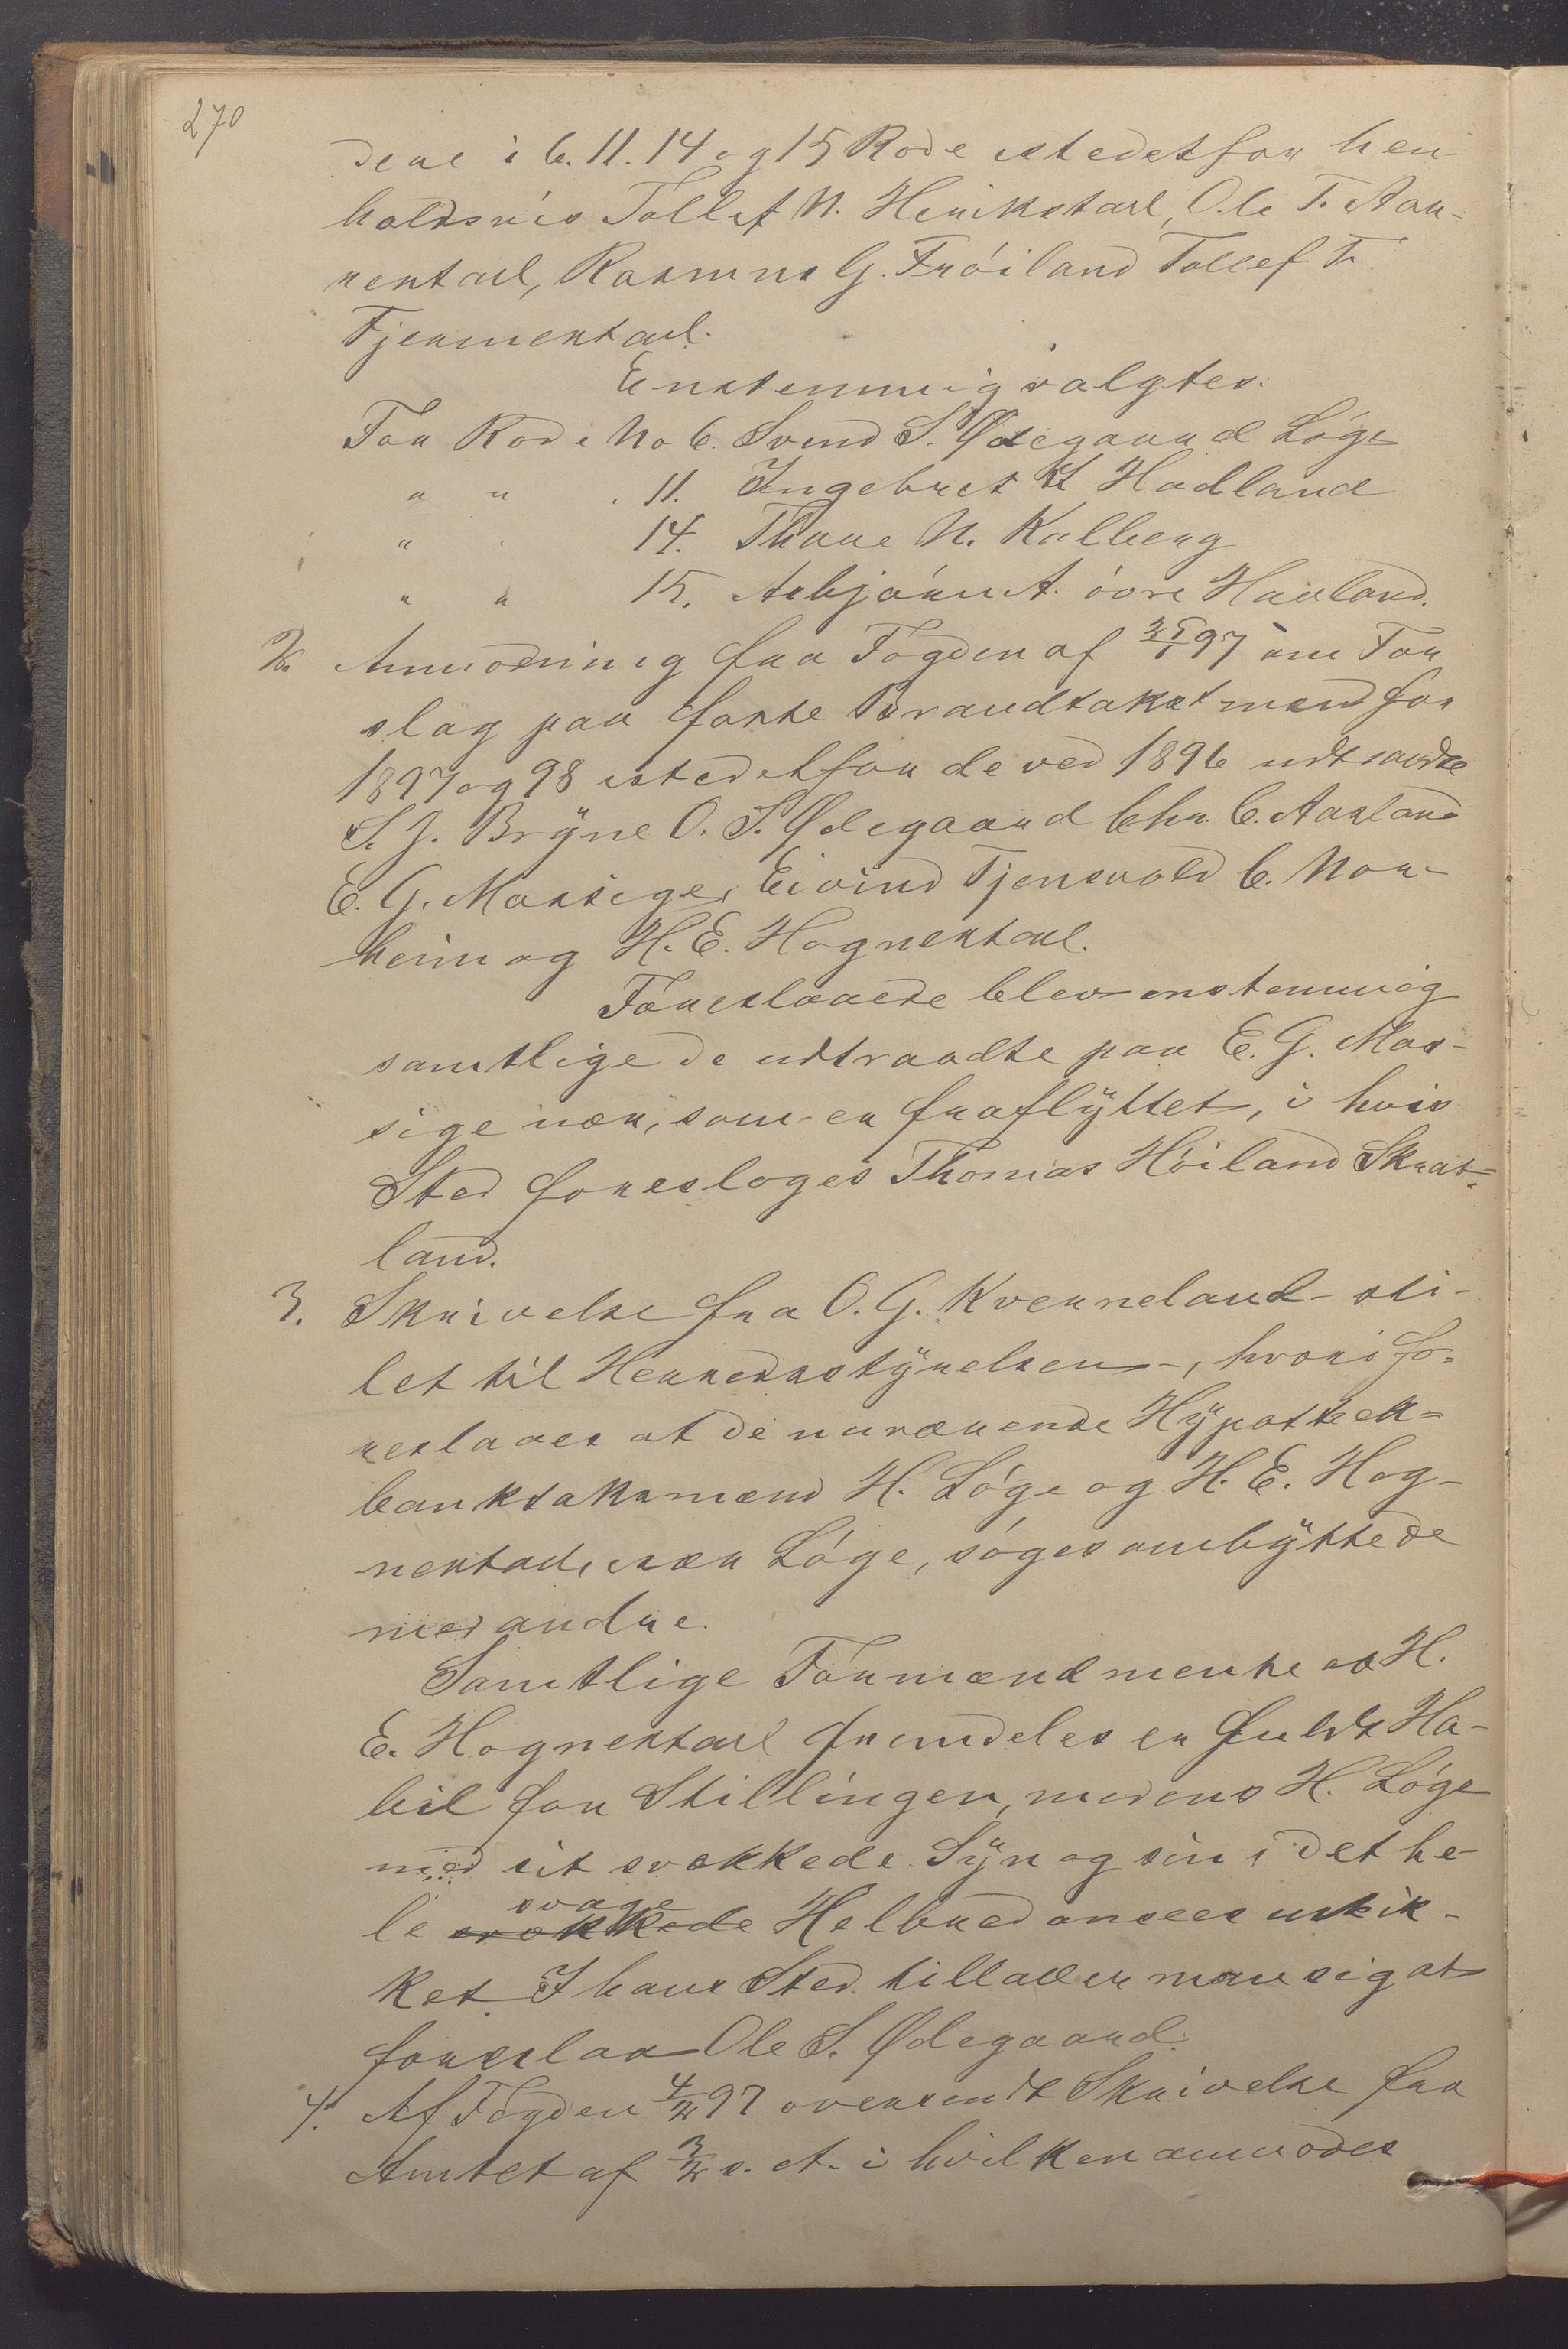 270
dere i 6. 11. 14 og 15 Rode istedetfor hen-
holdsvis Tollef N. Herikstad, Ole T. Aar-
restad, Rasmus G. Fröiland Tollef T.
Fjermestad.
Enstemmig valgtes.
For Rode No 6. Svend S. Ødegaard Löge
" " " 11. Ingebret H Hadland
" " 14. Thore N. Kalberg
" " 15. Asbjörn A. övre Haaland.
2. Anmodning fra Fogden af 25/1 97 om For
slag paa faste Brandtakstmænd for
1897 og 98 istedetfor de ved 1896 udtraadte
S. J. Bryne O. S. Ødegaard Chr. C. Aasland
E. G. Mossige, Eivind Tjensvold C. Nor-
heim og H. E. Hognestad.
Foreslaaede blev enstemmig
samtlige de udtraadte paa E. G. Mos-
sige nær, som er fraflyttet, i hvis
Sted foresloges Thomas Höiland Skrat-
land.
3. Skrivelse fra O. G. Kverneland - sti-
let til Herredsstyrelsen -, hvori fo-
reslaaes at de nuværende Hypothek-
banktaksmænd H. Löge og H. E. Hog-
nestad, især Löge, söges ombyttede
med andre.
Samtlige Formænd mente at H.
E. Hognestad fremdeles er fuldt Ha-
bil for Stillingen, medens H. Löge
med sit svækkede Syn og sin i det he-
le svækkede svage Helbred ansees uskik-
ket. I hans Sted tillader man sig at
foreslaa Ole S. Ødegaard.
4. Af Fogden 4/2 97 oversendt Skrivelse fra
Amtet af 3/2 s. A. i hvilken anmodes